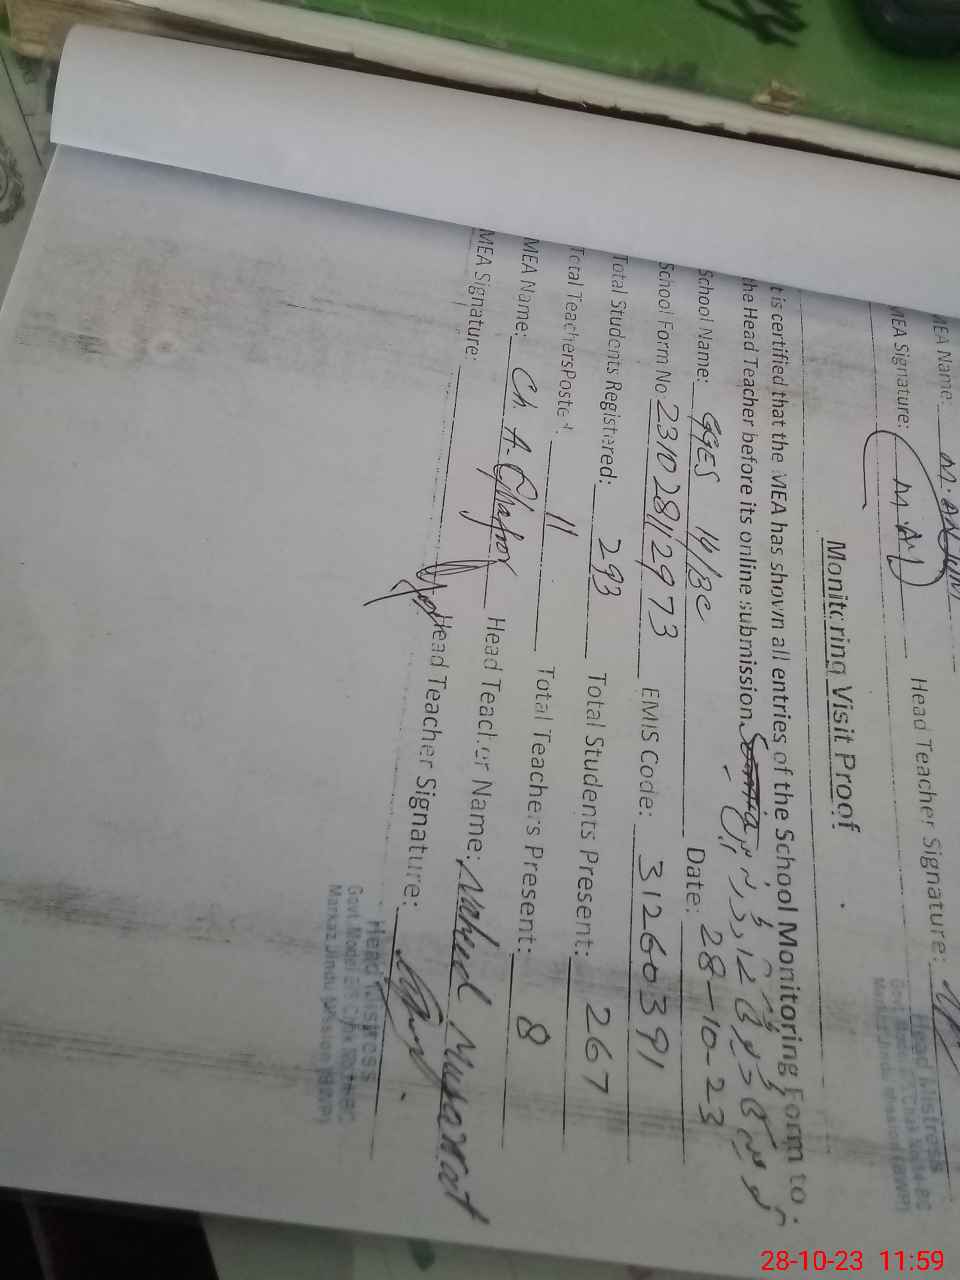 MEA Name: M. ANJUM
MEA Signature: M.A Head Teacher Signature:
Head Mistress
Monitoring Visit Proof
t is certified that the MEA has shown all entries of the School Monitoring Form to
the Head Teacher before its online submission
School Name: GGES 14/BC Date: 28-10-23
School Form No 231028112973 EMIS Code: 31260391
Total Students Registered: 293 Total Students Present: 267
Total Teachers Posted: 11 Total Teachers Present: 8
MEA Name: Ch. A. Ghafoor Head Teacher Name: Nahed Musarrat
MEA Signature: Head Teacher Signature:
Head Mistress
28-10-23 11:59